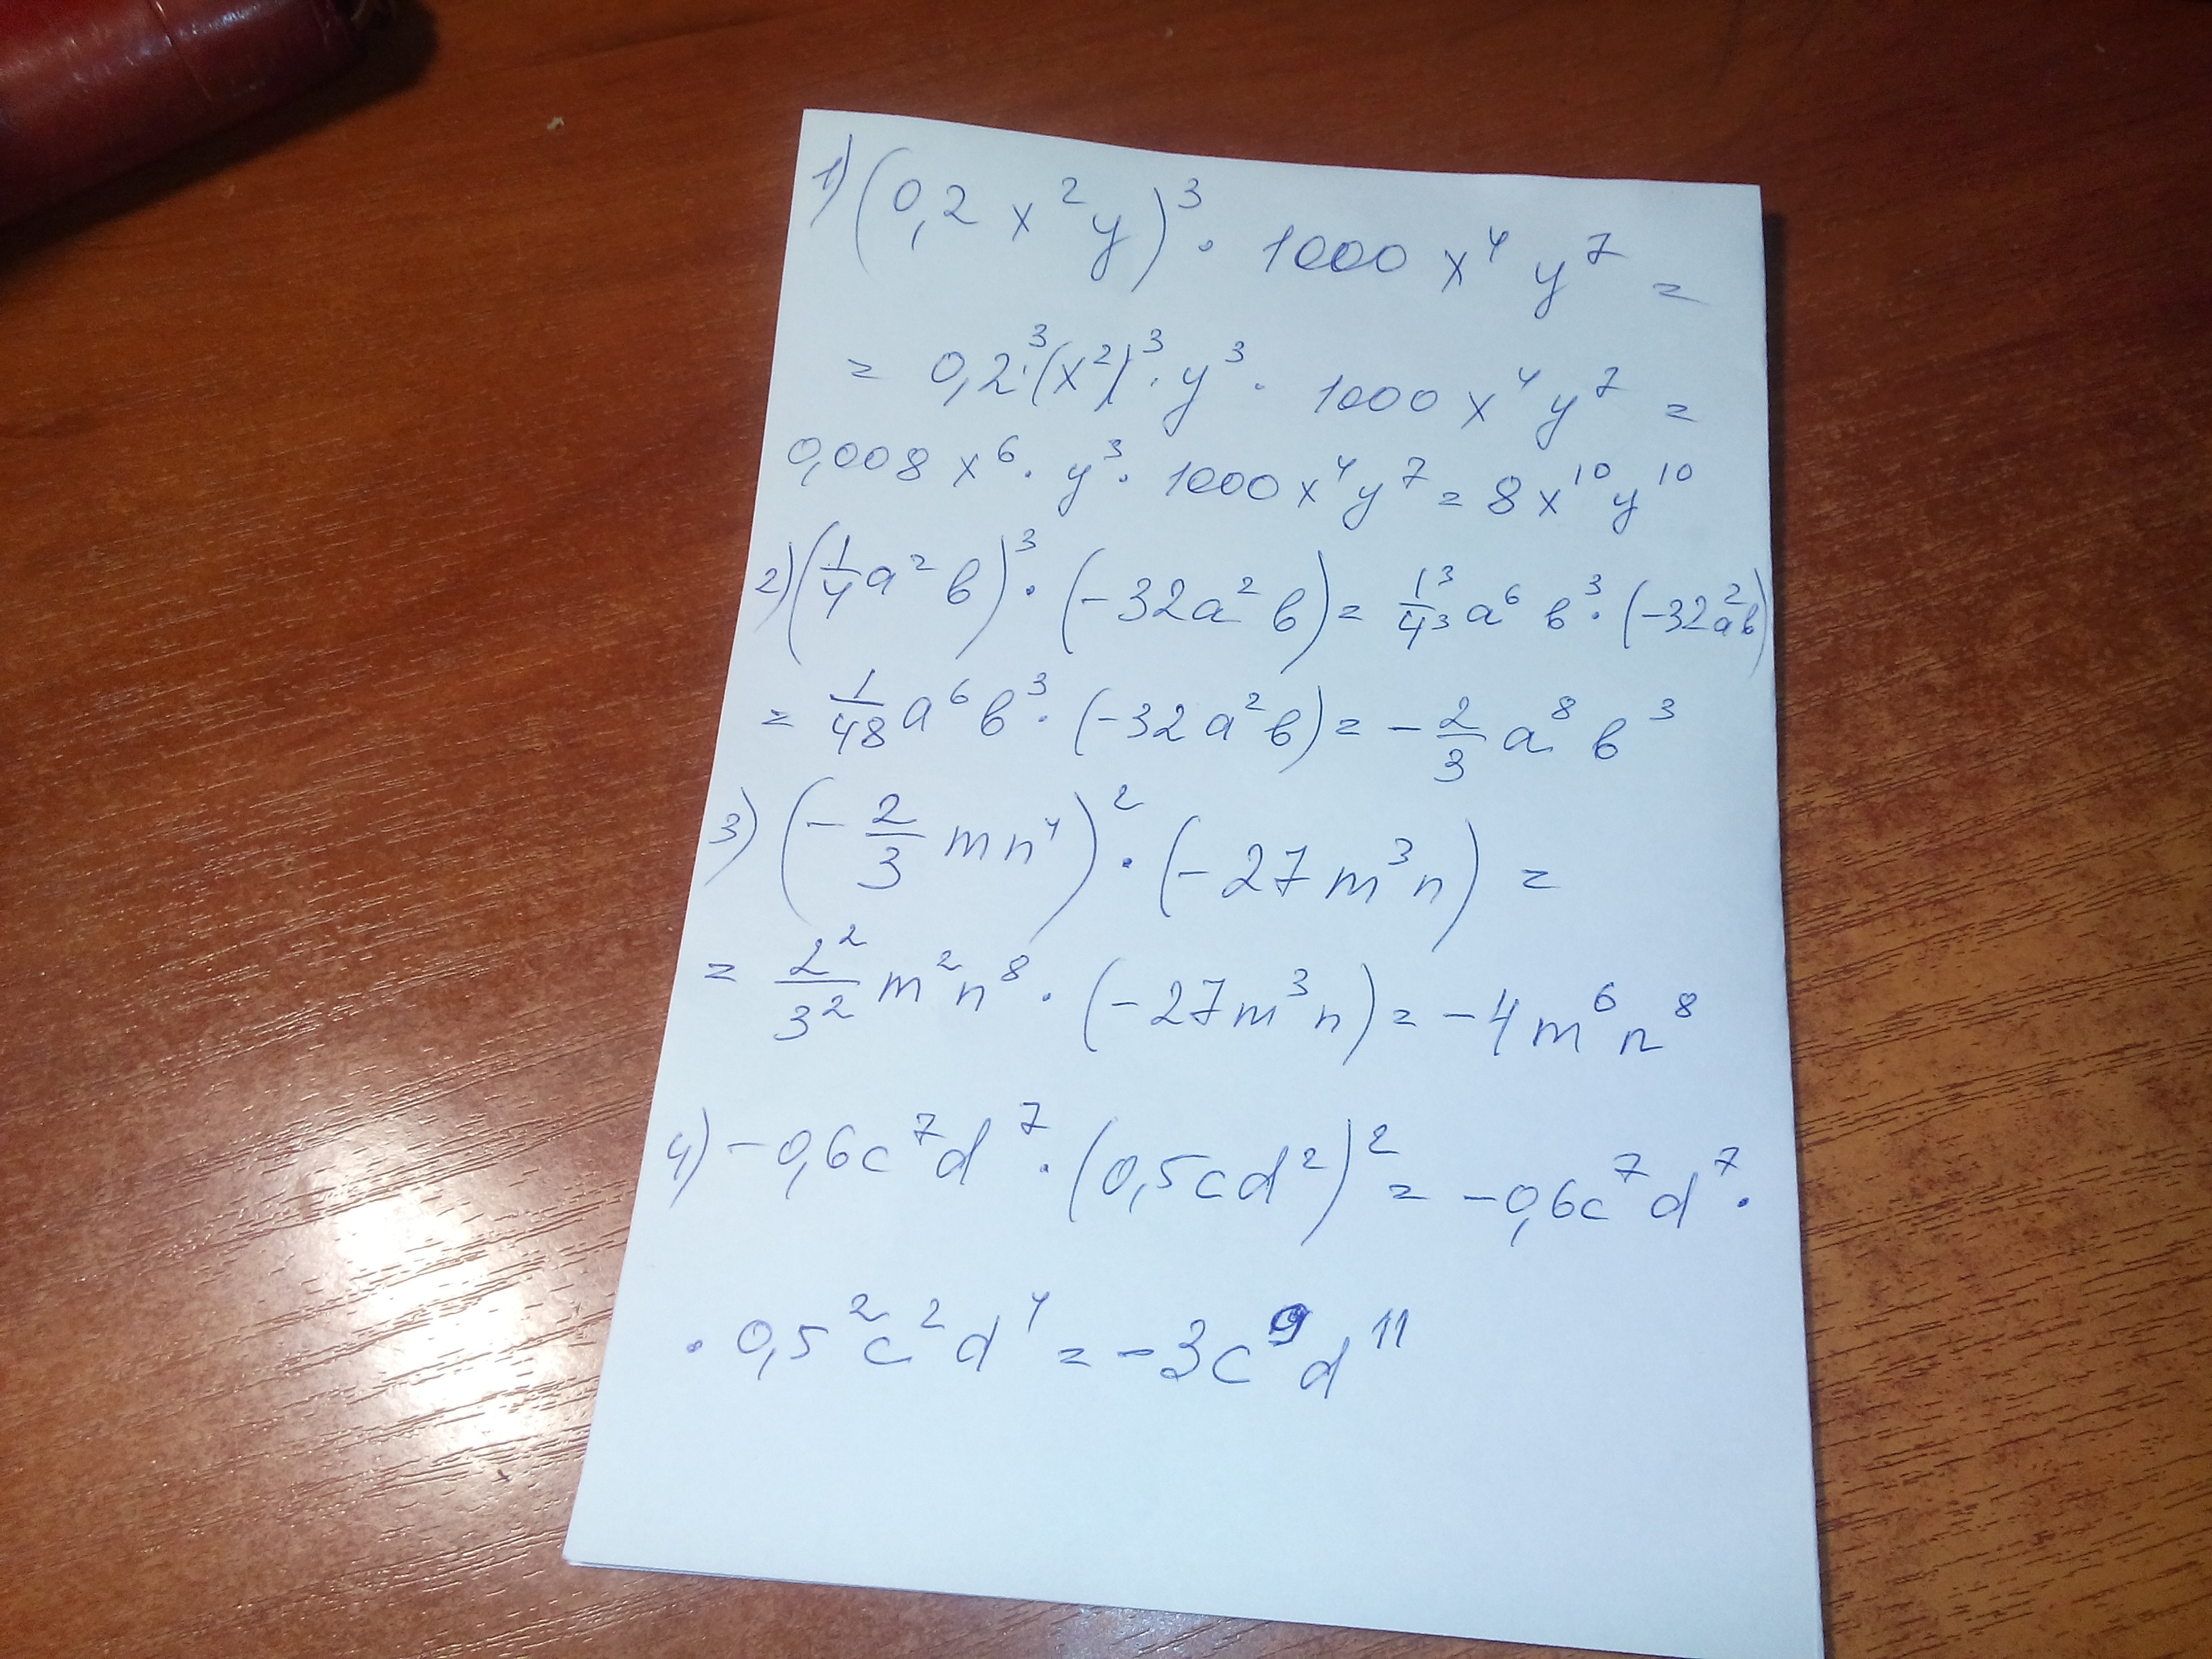 1) (0,2 x² y)³ · 1000 x⁴ y⁷ =
= 0,2³·(x²)³·y³· 1000 x⁴ y⁷ =
0,008 x⁶· y³· 1000 x⁴ y⁷ = 8 x¹⁰ y¹⁰
2) (1/4 a² b)³ · (-32a² b) = 1³/4³ a⁶ b³· (-32a²b)
= 1/48 a⁶ b³· (-32 a² b) = - 2/3 a⁸ b³
3) (- 2/3 m n⁴)² · (-27 m³ n) =
= 2²/3² m² n⁸ · (-27 m³ n) = -4 m⁶ n⁸
4) -0,6c⁷ d⁷ · (0,5cd²)² = -0,6c⁷ d⁷ ·
· 0,5² c² d⁴ = -3 c⁹ d¹¹